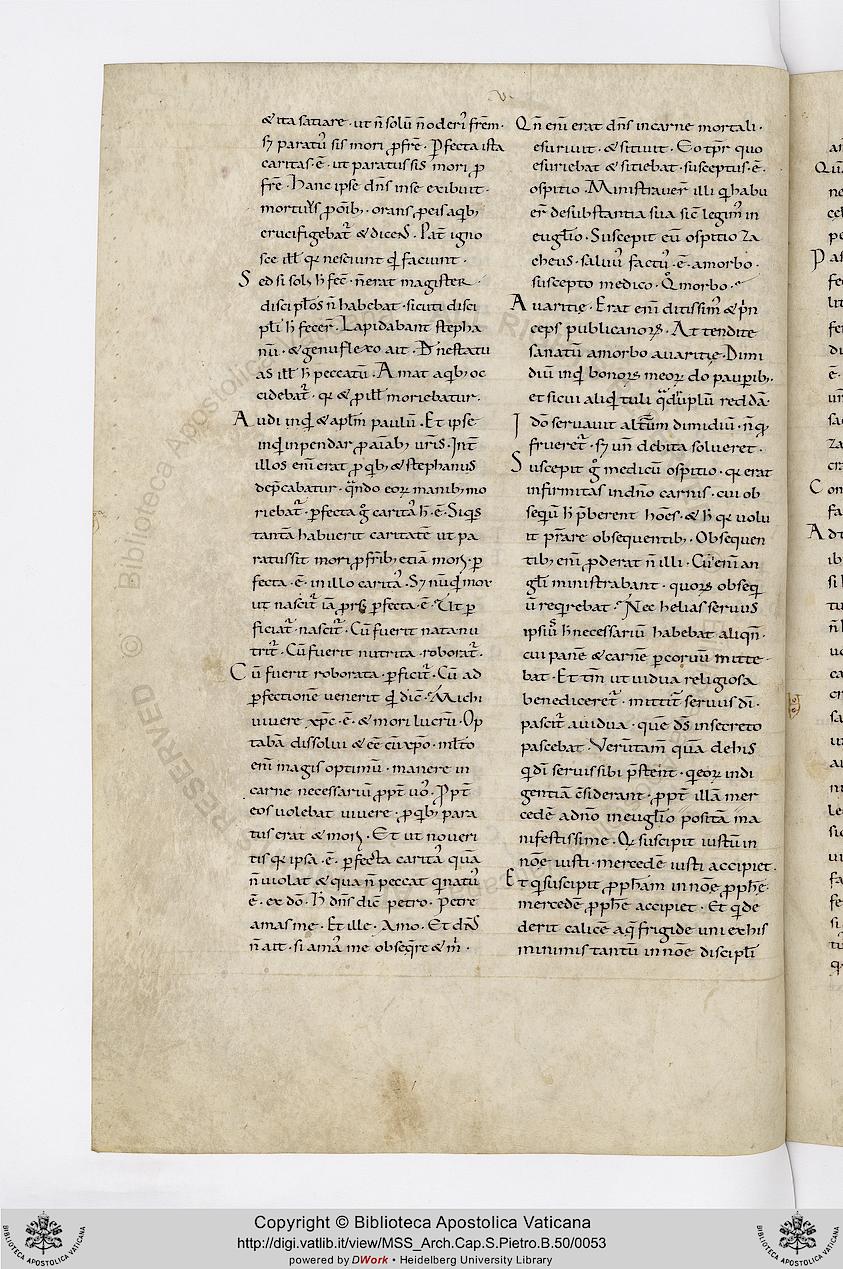 V
& ita satiare · ut n̄ solū n̄ oderī frēm·
sʒ paratū sis mori ꝓ frē · Pfecta ista
caritas ē · ut paratus sis mori ꝓ
frē · Hanc ipse dn̄s in se exibuit ·
mortuus ꝓ oīb; · orans ꝓ eis a qb;
crucifigebat̄ & dicens · Pat̄ igno
sce illī qr nesciunt qd faciunt ·
Sed si sol; h fec̄ · n̄ erat magister ·
discipl̄os n̄ habebat · sicuti disci
pl̄i h fecer̄ · Lapidabant stepha
nū · & genu flexo ait · Dn̄e ne statu
as ill̄ h peccatū · Amat a qb; oc
cidebat̄ · qr & ꝓ ill̄ moriebatur ·
Audi inqd & apl̄m paulū · Et ipse
inqd inpendar ꝓ aīab; ur̄is · Int̄
illos enī erat ꝓ qb; & stephanus
dep̄cabatur · qn̄do eoꝝ manib; mo
riebat̄ · ꝑfecta g̊ caritas h ē · Si qs
tantā habuerit caritatē ut pa
ratus sit mori ꝓ frīb; etiā mori · ꝑ
fecta · ē · in illo caritas · Sʒ nūqd mox
ut nascit̄ iā ꝓrs; ꝑfecta · ē · Ut ꝑ
ficiat̄ · nascit̄ · Cū fuerit nata nu
trit̄ · Cū fuerit nutrita · roborat̄ ·
Cū fuerit roborata · ꝑficit̄ · Cū ad
ꝑfectionē venerit qd dic̄ · Michi
vivere xp̄c · ē · & mori lucrū · Op
tabā dissolui & eē cū xp̄o · ml̄to
enī magis optimū · manere in
carne necessariū ꝓpt̄ uos · Ppt̄
eos uolebat uiuere · ꝓ qb; para
tus erat & mori · Et ut noueri
tis qr ipsa · ē · ꝑfecta caritas quā
n̄ uiolat & qua n̄ peccat q natus
ē · ex dō · H dn̄s dic̄ petro · Petre
amas me · Et ille · Amo · Et dn̄s
n̄ ait · si amas me obseq̄re & m̄ ·
Qn̄ enī erat dn̄s in carne mortali ·
esuriuit · & sitiuit · Eo tp̄r quo
esuriebat & sitiebat · susceptus · ē ·
ospitio · Ministrauer̄ illi q habu
er̄ de substantia sua sic̄ legim̄ in
euḡlio · Suscepit eū ospitio Za
cheus · saluus factus · ē · a morbo ·
suscepto medico · Q̊ morbo ·
Auaritię · Erat enī ditissim̄ & p̄n
ceps publicanoꝝ · Attendite
sanatū a morbo auaritię · Dimi
diū inqd bonoꝝ meoꝝ do paup̄ib; ·
et si cui aliqd tuli q̄druplū reddā ·
Idō seruauit alt̄um dimidiū · n̄ q̊
frueret̄ · sʒ un̄ debita solueret ·
Suscepit g̊ medicū ospitio · qr erat
infirmitas in dn̄o carnis · cui ob
sequiū h p̄berent hoēs · & h qr uolu
it p̄stare obsequentib; · Obsequen
tib; enī ꝓderat n̄ illi · Cui enī an
gl̄i ministrabant · quoꝝ obseq̄
ū reqrebat · Nec helias seruus
ipsius h necessariū habebat aliqn̄ ·
cui panē & carnē ꝑ coruū mitte
bat · Et tm̄ ut uidua religiosa
benediceret̄ · mittit̄ seruus dī ·
pascit̄ a uidua · quē ds̄ in secreto
pascebat · Verūtam̄ quā de his
q dī seruis sibi p̄stent · q eoꝝ indi
gentiā c̄siderant · ꝓpt̄ illā mer
cedē a dn̄o in euḡlio positā ma
nifestissime · Qr suscipit iustū in
nōe iusti · mercedē iusti accipiet ·
Et q suscipit ꝓph̄am in nōe ꝓph̄ę ·
mercedē ꝓph̄ę accipiet · Et q de
derit calicē aq frigide uni ex his
minimis tantū in nōe discipl̄i
Copyright © Biblioteca Apostolica Vaticana
http://digi.vatlib.it/view/MSS_Arch.Cap.S.Pietro.B.50/0053
powered by DWork • Heidelberg University Library